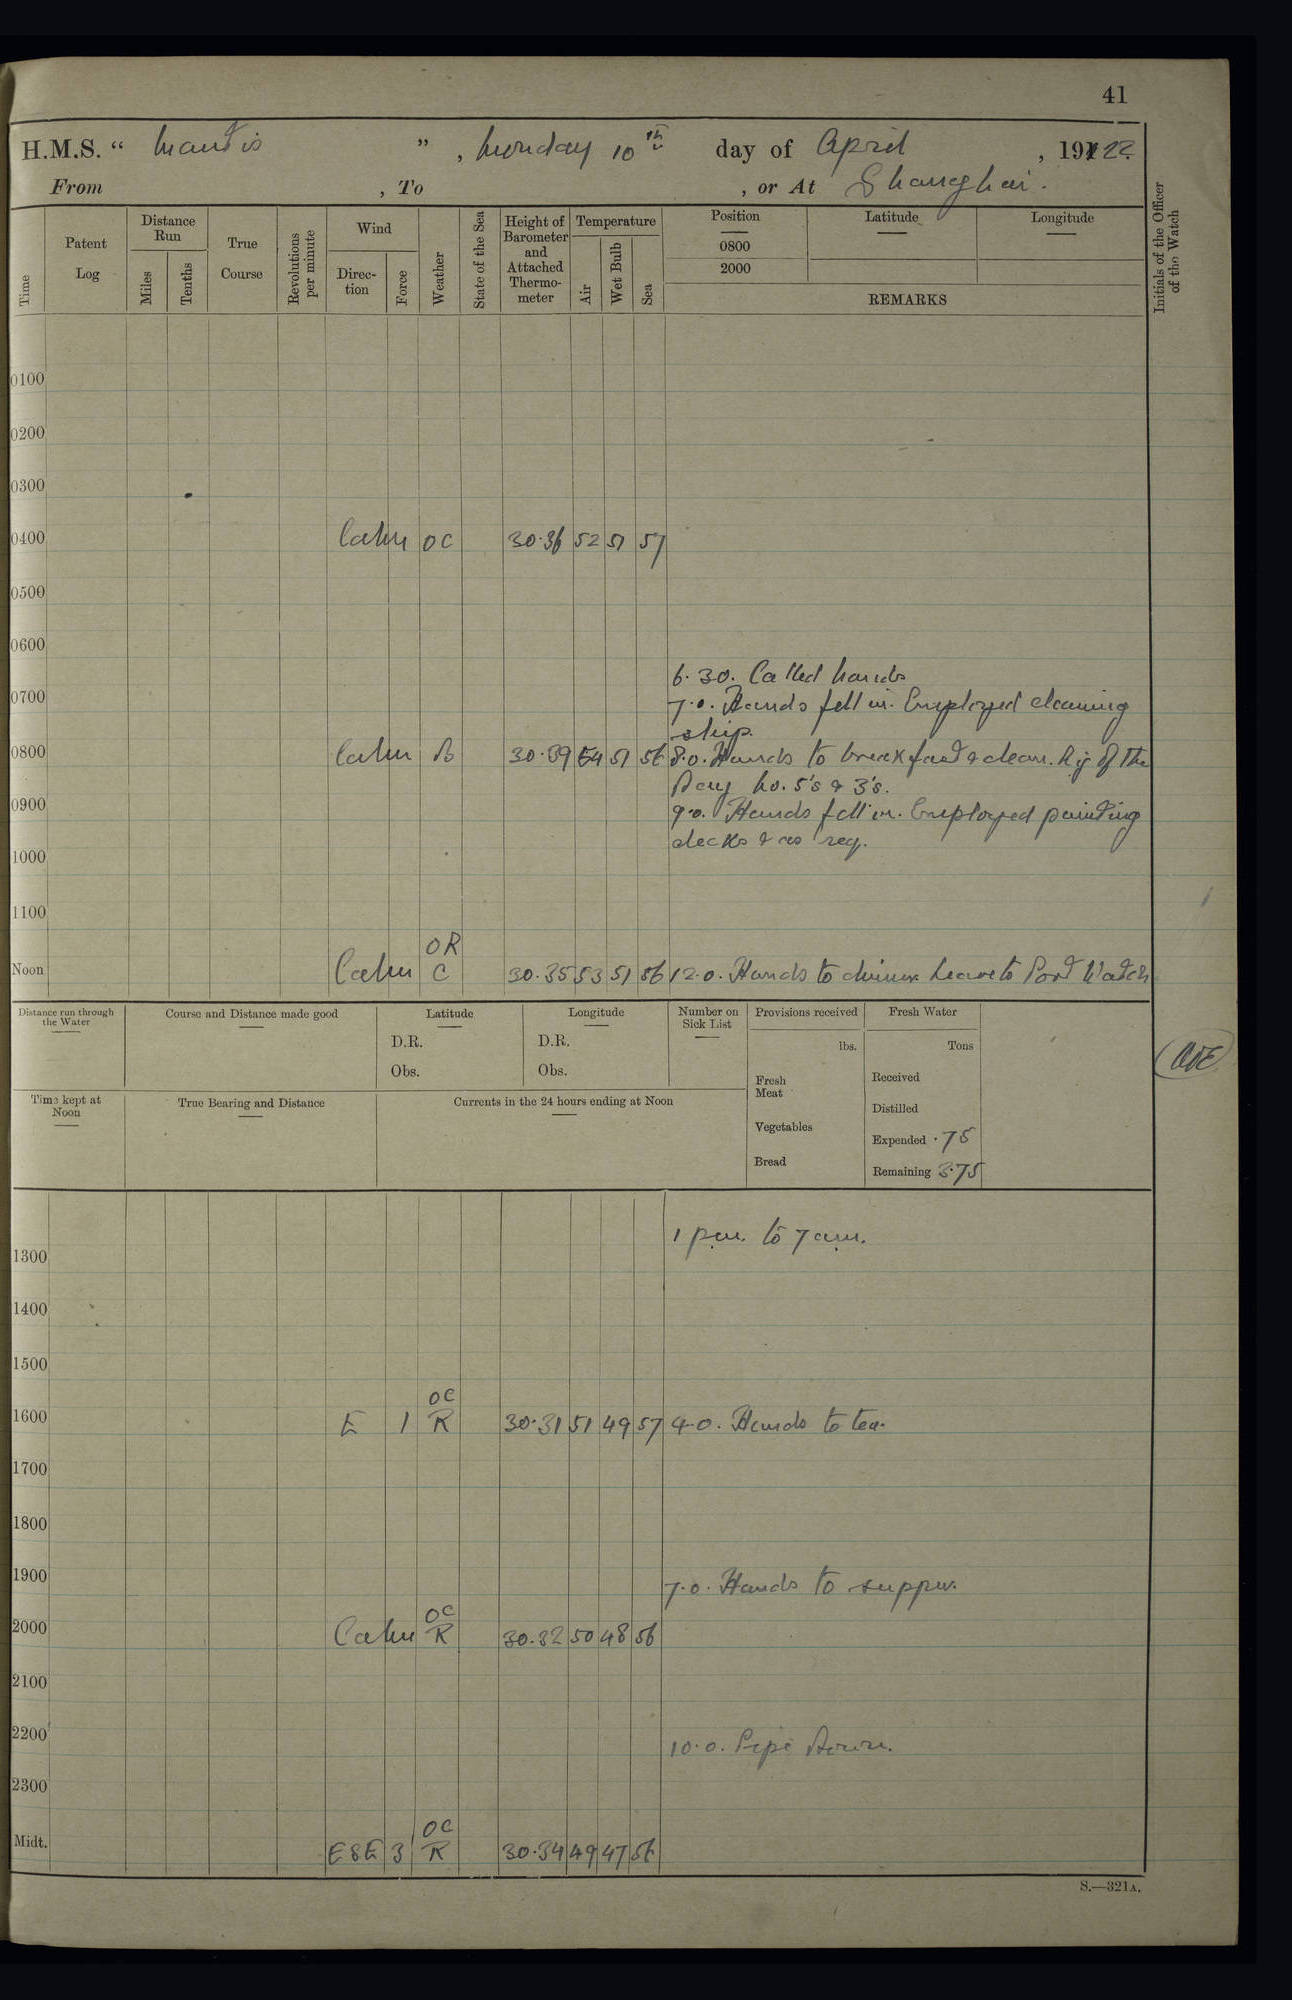 41
H.M.S. “ Mantis ” , Monday 10th day of April , 1922.
From , To , or At Shanghai.
Time
Patent Log
Distance Run
Miles
Tenths
True Course
Revolutions per minute
Wind
Direction
Force
Weather
State of the Sea
Height of Barometer and Attached Thermometer
Temperature
Air
Wet Bulb
Sea
Position
Latitude
Longitude
0800
2000
REMARKS
Initials of the Officer of the Watch
0100
0200
0300
0400 Calm OC 30.36 52 51 57
0500
0600
6.30. Called hands
0700 7.0. Hands fell in. Employed cleaning
ship.
0800 Calm B 30.39 54 51 56 8.0. Hands to breakfast & clean. Rig of the
Day No. 5's & 3's.
0900 9.0. Hands fell in. Employed painting
decks & as req.
1000
1100
OR
Noon Calm C 30.35 53 51 56 12.0. Hands to dinner. Leave to Port Watch
Distance run through the Water
Course and Distance made good
Latitude
D.R.
Obs.
Longitude
D.R.
Obs.
Number on Sick List
Provisions received
lbs.
Fresh Meat
Vegetables
Bread
Fresh Water
Tons
Received
Distilled
Expended .75
Remaining 3.75
Time kept at Noon
True Bearing and Distance
Currents in the 24 hours ending at Noon
1 p.m. to 7 a.m.
1300
1400
1500
OC
1600 E 1 R 30.31 51 49 57 4.0. Hands to tea.
1700
1800
1900 7.0. Hands to supper.
OC
2000 Calm R 30.32 50 48 56
2100
2200 10.0. Pipe Down.
2300
OC
Midt. ESE 3 R 30.34 49 47 56
S.—321A.